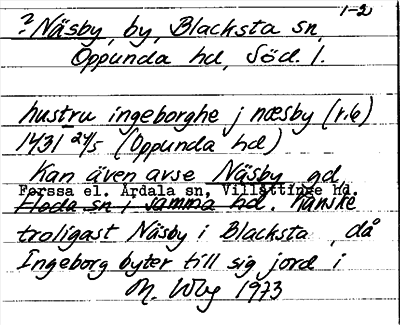 1-2
? Näsby, by, Blacksta sn,
Oppunda hd, Söd. l.
hustru ingeborghe j næsby (r.6)
1431 24/5 (Oppunda hd)
Kan även avse Näsby gd
Forssa el. Årdala sn, Villåttinge hd.
Floda sn i samma hd. kanske
troligast Näsby i Blacksta då
Ingeborg byter till sig jord i
M. Wbg 1973